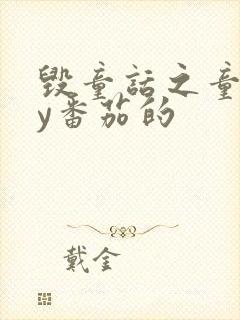 毁童话之童
y番茄的
戴金